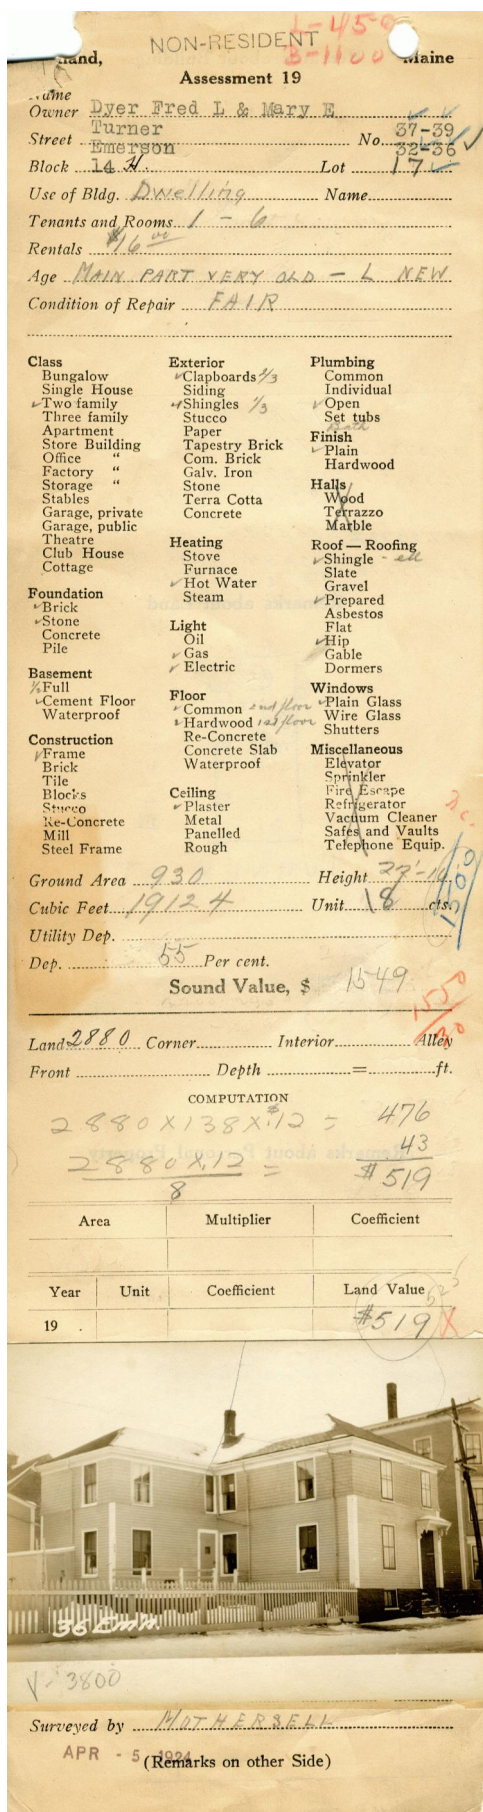 L-450
NON-RESIDENT
B-1100
land, Maine
Assessment 19
Name
Owner Dyer Fred L & Mary E
Turner 37-39
Street Emerson No. 32-36
Block 14 H. Lot 17
Use of Bldg. Dwelling Name
Tenants and Rooms 1 - 6
Rentals $16 00
Age MAIN PART VERY OLD - L NEW
Condition of Repair FAIR
Class
Bungalow
Single House
✓Two family
Three family
Apartment
Store Building
Office "
Factory "
Storage "
Stables
Garage, private
Garage, public
Theatre
Club House
Cottage
Foundation
✓Brick
✓Stone
Concrete
Pile
Basement
½ Full
✓Cement Floor
Waterproof
Construction
✓Frame
Brick
Tile
Blocks
Stucco
Re-Concrete
Mill
Steel Frame
Exterior
✓Clapboards 2/3
Siding
✓Shingles 1/3
Stucco
Paper
Tapestry Brick
Com. Brick
Galv. Iron
Stone
Terra Cotta
Concrete
Heating
Stove
Furnace
✓Hot Water
Steam
Light
Oil
✓Gas
✓Electric
Floor
✓Common 2nd floor
✓Hardwood 1st floor
Re-Concrete
Concrete Slab
Waterproof
Ceiling
✓Plaster
Metal
Panelled
Rough
Plumbing
Common
Individual
✓Open
Set tubs
Bath
Finish
✓Plain
Hardwood
Halls
Wood
Terrazzo
Marble
Roof — Roofing
✓Shingle - ell
Slate
Gravel
✓Prepared
Asbestos
Flat
✓Hip
Gable
Dormers
Windows
✓Plain Glass
Wire Glass
Shutters
Miscellaneous
Elevator
Sprinkler
Fire Escape
Refrigerator
Vacuum Cleaner
Safes and Vaults
Telephone Equip.
1500
Ground Area 930 Height 22'-10
Cubic Feet 19124 Unit 18 cts.
Utility Dep.
Dep. 55 Per cent.
Sound Value, $ 1549
1550
Land 2880 Corner Interior Alley
Front Depth = ft.
COMPUTATION
2880 X 138 X $.12 = 476
43
2880 X .12 = $519
8
Area Multiplier Coefficient
Year Unit Coefficient Land Value
525
19 . $519 X
36 Em'n.
V- 3800
Surveyed by MOTHERSELL
APR - 5 1924
(Remarks on other Side)